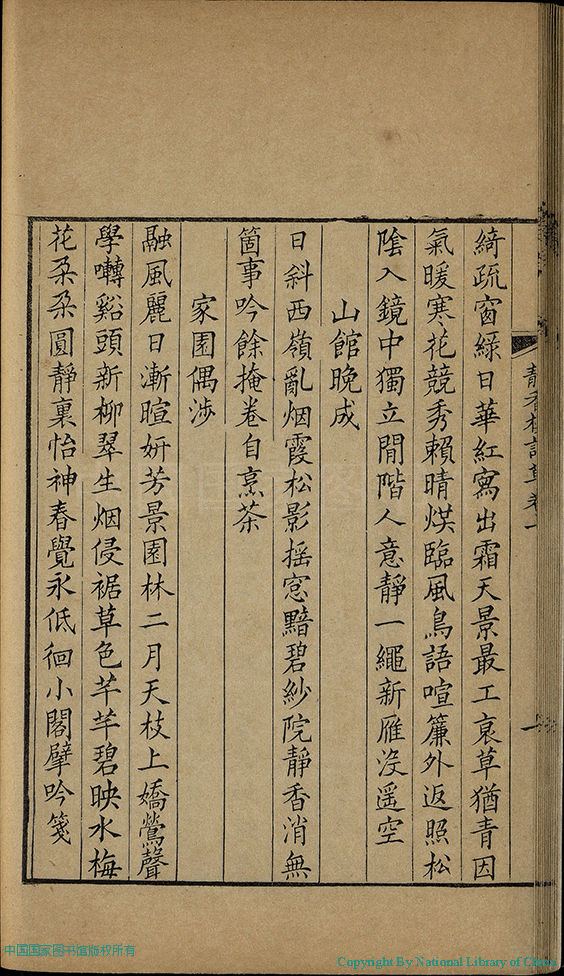 綺疏窗緑日華紅寫出霜天景最工哀草猶青因
氣暖寒花競秀賴晴烘臨風鳥語喧簾外返照松
陰入鏡中獨立閒階人意靜一繩新雁沒遥空
山館晚成
日斜西嶺亂烟霞松影摇窓黯碧紗院靜香消無
箇事吟餘掩卷自烹茶
家園偶涉
融風麗日漸暄妍芳景園林二月天枝上嬌鶯聲
學囀谿頭新柳翠生烟侵裾草色芊芊碧映水梅
花朶朶圓靜裏怡神春覺永低徊小閣擘吟箋
中国国家图书馆版权所有
Copyright By National Library of China